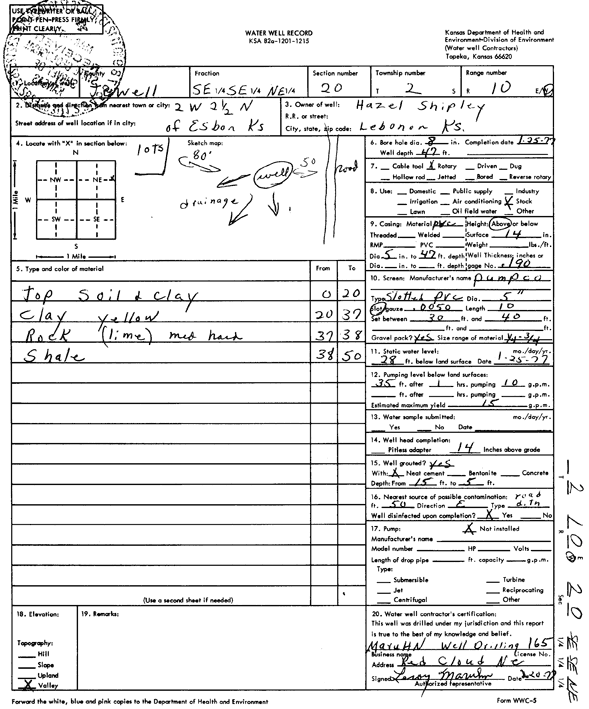 USE TYPEWRITER OR BALL
POINT PEN-PRESS FIRMLY,
PRINT CLEARLY.
WATER WELL RECORD
KSA 82a-1201-1215
Kansas Department of Health and
Environment-Division of Environment
(Water well Contractors)
Topeka, Kansas 66620
County Fraction Section number Township number Range number
Jewell SE 1/4 SE 1/4 NE 1/4 20 T 2 S R 10 E/W
2. Distance and direction from nearest town or city: 2 W 2 1/2 N
Street address of well location if in city: of Esbon Ks
3. Owner of well: Hazel Shipley
R.R. or street:
City, state, zip code: Lebanon Ks.
4. Locate with "X" in section below:
N
NW NE X
W E
SW SE
S
1 Mile
1 Mile
Sketch map:
80'
well
50
road
drainage
6. Bore hole dia. 8 in. Completion date 1-25-77
Well depth 42 ft.
7. Cable tool X Rotary Driven Dug
Hollow rod Jetted Bored Reverse rotary
8. Use: Domestic Public supply Industry
Irrigation Air conditioning X Stock
Lawn Oil field water Other
9. Casing: Material PVC Height: Above or below
Threaded Welded Surface 14 in.
RMP PVC Weight lbs./ft.
Dia. 5 in. to 42 ft. depth Wall Thickness: inches or
Dia. in. to ft. depth gage No. .190
5. Type and color of material From To
Top Soil & clay 0 20
Clay yellow 20 37
Rock (lime) med hard 37 38
Shale 38 50
(Use a second sheet if needed)
10. Screen: Manufacturer's name Pumpco
Type Slotted PVC Dia. 5"
Slot/gauze .0050 Length 10
Set between 30 ft. and 40 ft.
ft. and ft.
Gravel pack? Yes Size range of material 1/4-3/4
11. Static water level: mo./day/yr.
28 ft. below land surface Date 1-25-77
12. Pumping level below land surfaces:
35 ft. after 1 hrs. pumping 10 g.p.m.
ft. after hrs. pumping g.p.m.
Estimated maximum yield 15 g.p.m.
13. Water sample submitted: mo./day/yr.
Yes No Date
14. Well head completion:
Pitless adapter 14 Inches above grade
15. Well grouted? yes
With: X Neat cement Bentonite Concrete
Depth: From 15 ft. to 5 ft.
16. Nearest source of possible contamination: road
ft. 50 Direction E Type
Well disinfected upon completion? X Yes No
17. Pump: X Not installed
Manufacturer's name
Model number HP Volts
Length of drop pipe ft. capacity g.p.m.
Type:
Submersible Turbine
Jet Reciprocating
Centrifugal Other
18. Elevation:
Topography:
Hill
Slope
Upland
X Valley
19. Remarks:
20. Water well contractor's certification:
This well was drilled under my jurisdiction and this report
is true to the best of my knowledge and belief.
Maruhn Well Drilling 165
Business name License No.
Address Red Cloud Ne
Signed Leroy Maruhn Date
Authorized representative
Forward the white, blue and pink copies to the Department of Health and Environment
Form WWC-5